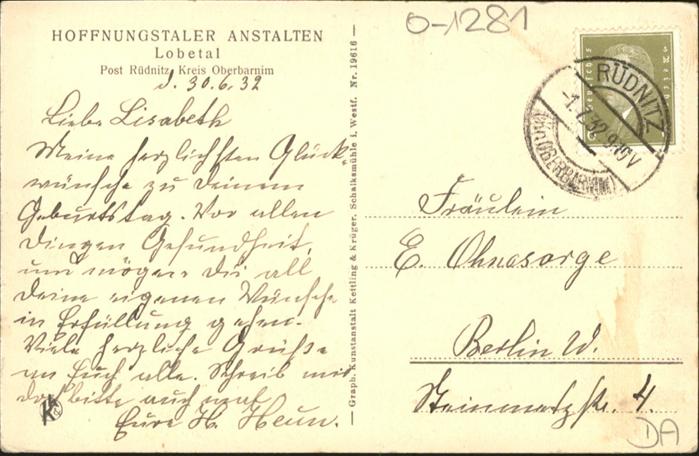 HOFFNUNGSTALER ANSTALTEN
Lobetal
Post Rüdnitz, Kreis Oberbarnim
d. 30.6.32
Liebe Lisabeth
Meine herzlichsten Glück-
wünsche zu Deinem
Geburtstag. Vor allen
Dingen Gesundheit,
und mögen Dir all
Deine eigenen Wünsche
in Erfüllung gehen.
Viele herzliche Grüße
an Euch alle. Schreib mir
doch bitte auch mal
Eure H. Heun.
Graph. Kunstanstalt Kettling & Krüger, Schalksmühle i. Westf. Nr. 19616
0-1281
RÜDNITZ
-1.7.32.9-10V
OBERBARNIM
Fräulein
E. Ohnesorge
Berlin W.
Steinmetzstr. 4.
DA